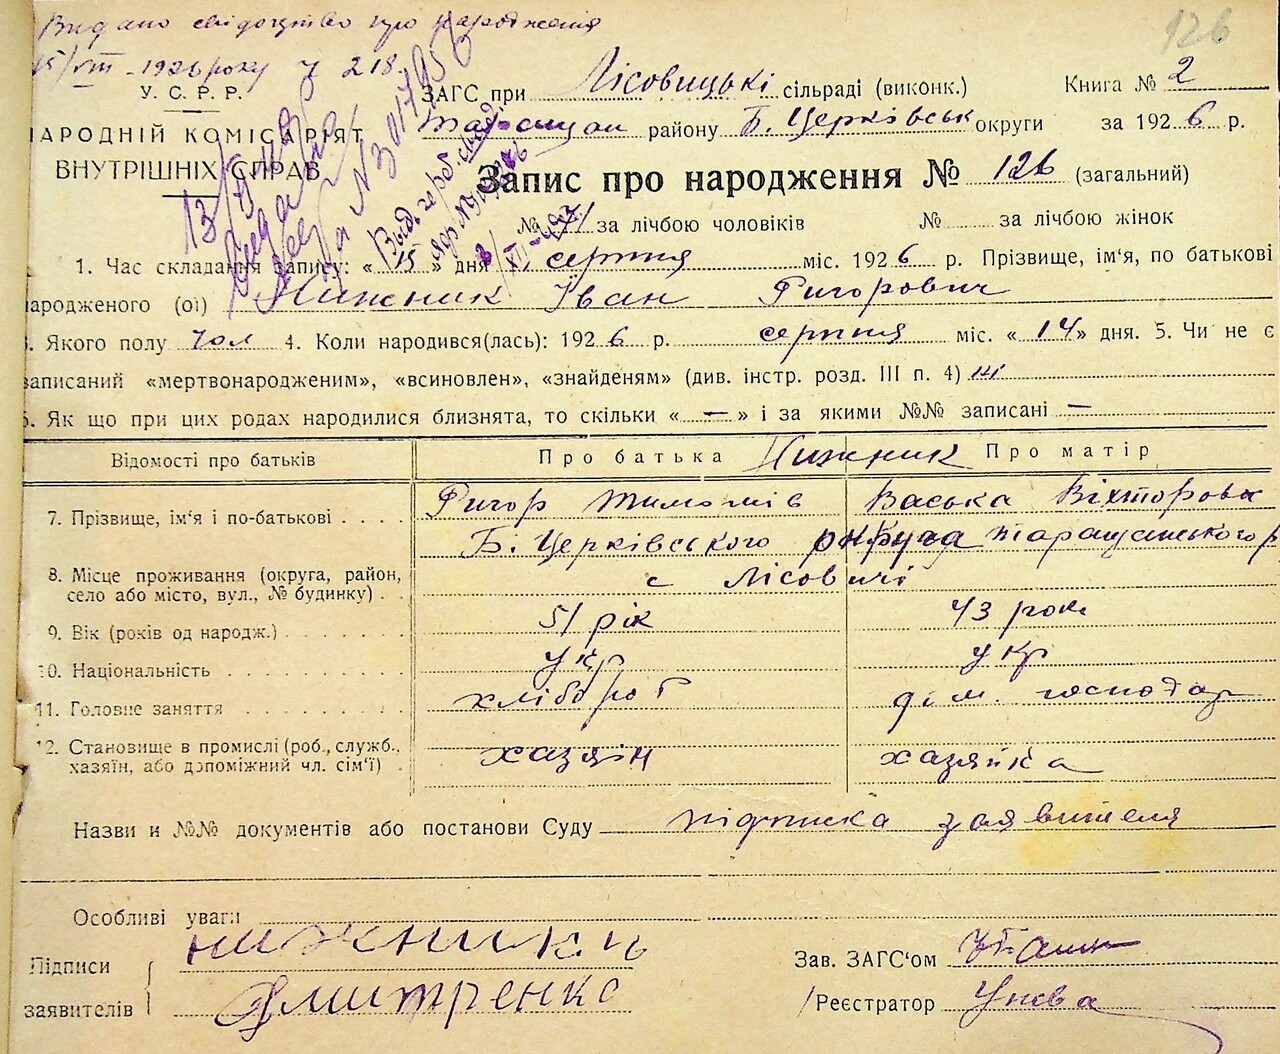 Видано свідоцтво про народження
15/VIII - 1926 року У 218.
126
У. С. Р. Р.
НАРОДНІЙ КОМІСАРІЯТ
ВНУТРІШНІХ СПРАВ
ЗАГС при Лісовицькі сільраді (виконк.) Книга № 2
району Б. Церківськ округи за 1926 р.
Запис про народження № 126 (загальний)
№ 71 за лічбою чоловіків № за лічбою жінок
1. Час складання запису: « 15 » дня серпня міс. 1926 р. Прізвище, ім'я, по батькові
народженого (ої) Нижник Іван Григорович
3. Якого полу чол 4. Коли народився(лась): 1926 р. серпня міс. « 14 » дня. 5. Чи не є
записаний «мертвонародженим», «всиновлен», «знайденям» (див. інстр. розд. III п. 4) ні
6. Як що при цих родах народилися близнята, то скільки « — » і за якими №№ записані —
Відомості про батьків Про батька Нижник Про матір
7. Прізвище, ім'я і по-батькові Григор Тимофіїв Васька Вікторова
Б. Церківського округа Таращанського р
8. Місце проживання (округа, район, село або місто, вул., № будинку) с Лісовичі
9. Вік (років од народж.) 51 рік 43 роки
10. Національність укр укр
11. Головне заняття хлібороб дом. господар
12. Становище в промислі (роб., служб., хазяїн, або допоміжний чл. сім'ї) хазяїн хазяйка
Назви и №№ документів або постанови Суду підписка заявителя
Особливі уваги
Підписи заявителів нижникь
Дмитренко
Зав. ЗАГС'ом
Реєстратор